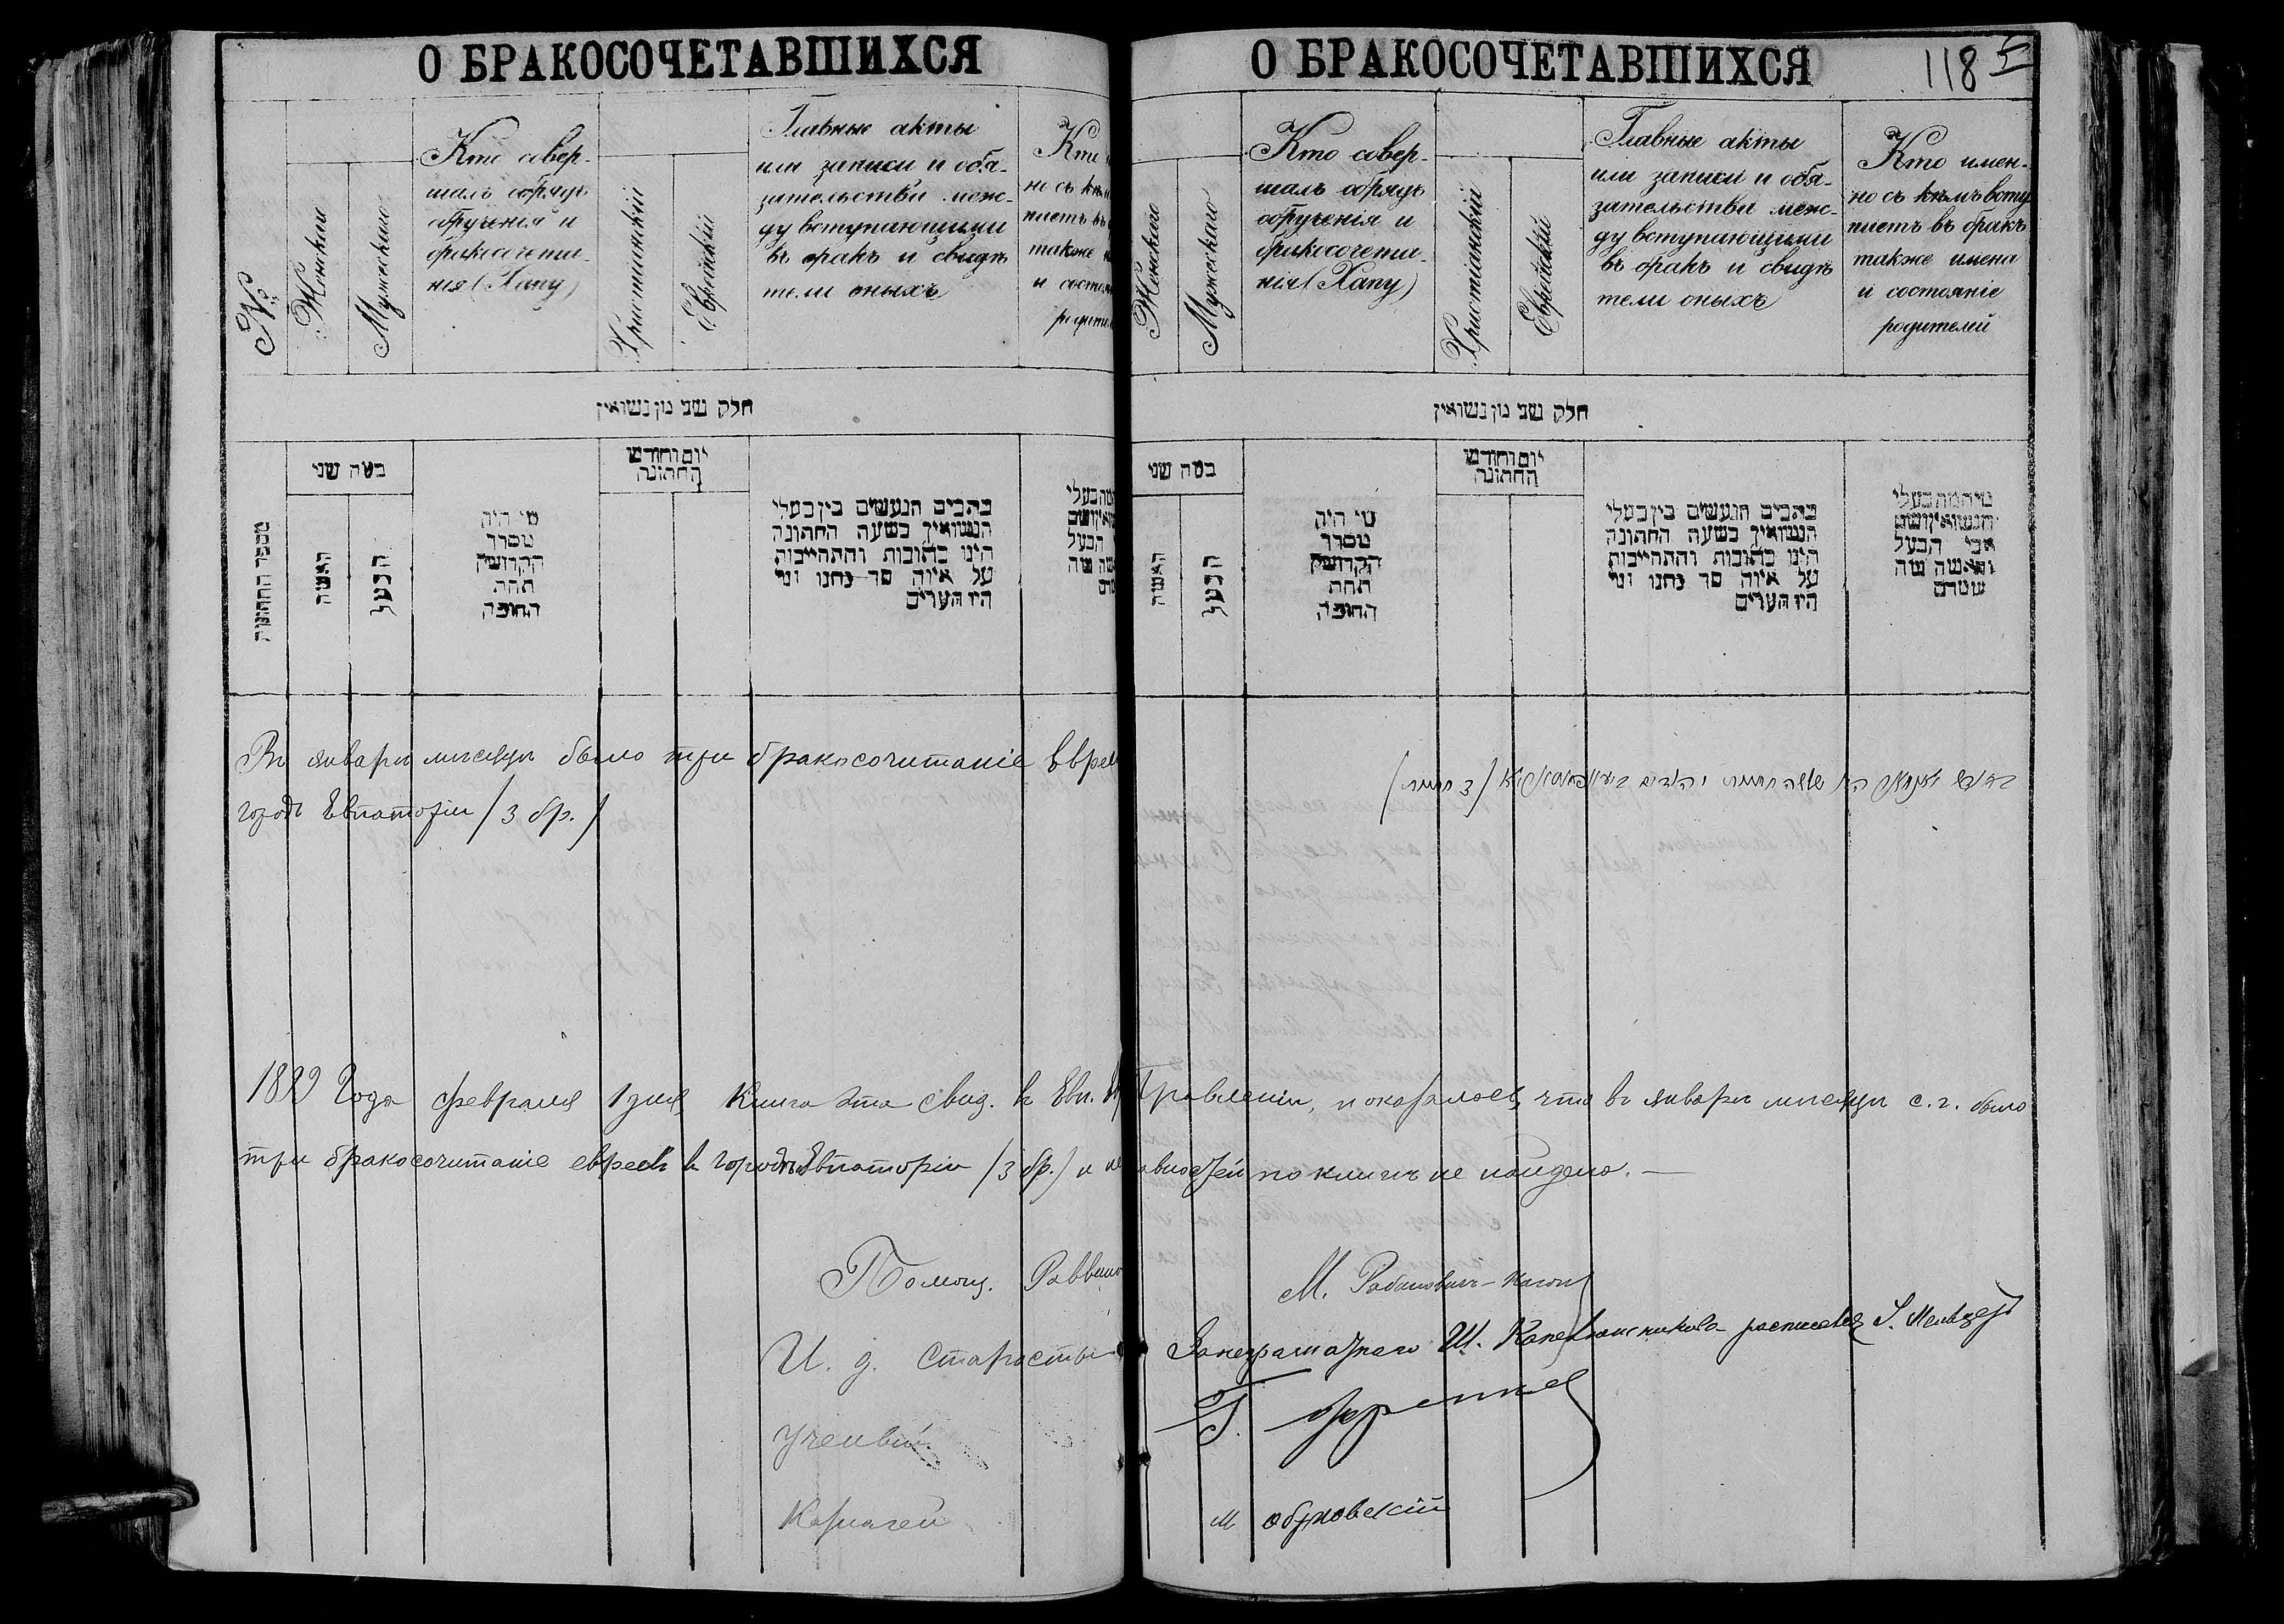 О БРАКОСОЧЕТАВШИХСЯ
№
Женскаго
Мужескаго
Кто совер-
шалъ обрядъ
обрученія и
бракосочета-
нія (Хапу)
Христіанскій
Еврейскій
Главные акты
или записи и обя-
зательства меж-
ду вступающими
въ бракъ и свидѣ
тели оныхъ
Кто
но съ
также
и состоя
родител
חלק שני מן נשואין
מספר החתונה
כמה שני
האשה
הבעל
מי היה
מסדר
הקדושין
תחת
החופה
יום וחודש
החתונה
כתבים הנעשים בין בעלי
הנשואין בשעה החתונה
היינו כתובות והתחייבות
על איזה סך
העדים
Въ январѣ мѣсяцѣ было три бракосочитаніе
городѣ Евпаторіи / 3 бр. /
О БРАКОСОЧЕТАВШИХСЯ
118
Женскаго
Мужескаго
Кто совер-
шалъ обрядъ
обрученія и
бракосочета-
нія (Хапу)
Христіанскій
Еврейскій
Главные акты
или записи и обя-
зательства меж-
ду вступающими
въ бракъ и свидѣ
тели оныхъ
Кто имен-
но съ кѣмъ всту
паетъ въ бракъ
также имена
и состояніе
родителей
חלק שני מן נשואין
כמה שני
האשה
הבעל
מי היה
מסדר
הקדושין
תחת
החופה
יום וחודש
החתונה
כתבים הנעשים בין בעלי
הנשואין בשעה החתונה
היינו כתובות והתחייבות
על איזה סך
העדים
אבי הבעל
והאשה
1889 Года февраля 1 дня Книга эта свид. в Евп. Правленіи, показалось, что въ январѣ мѣсяцѣ с. г. было
три бракосочитаніе евреевъ в городѣ Евпаторіи / 3 бр. / и по книгѣ не найдено. —
Помощ. Раввина М. Рабинович-Каган
И. д. старосты Неграмотнаго Ш. росписался
Ученый Г.
Казначей М